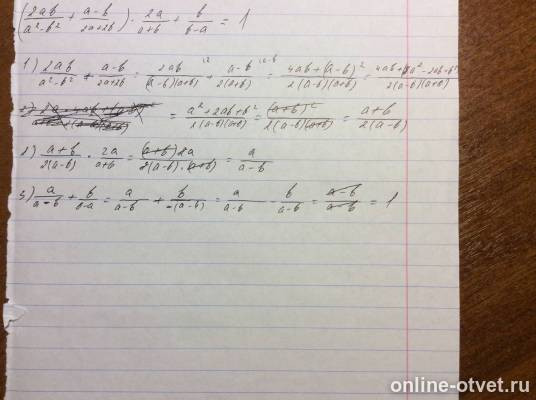 (2ab/(a²-b²) + (a-b)/(2a+2b)) · 2a/(a+b) + b/(b-a) = 1
1) 2ab/(a²-b²) + (a-b)/(2a+2b) = 2ab/((a-b)(a+b)) + (a-b)/(2(a+b)) = (4ab+(a-b)²)/(2(a-b)(a+b)) = (4ab+a²-2ab+b²)/(2(a-b)(a+b))
= (a²+2ab+b²)/(2(a-b)(a+b)) = (a+b)²/(2(a-b)(a+b)) = (a+b)/(2(a-b))
2) (a+b)/(2(a-b)) · 2a/(a+b) = (a+b)2a/(2(a-b)·(a+b)) = a/(a-b)
3) a/(a-b) + b/(b-a) = a/(a-b) + b/(-(a-b)) = a/(a-b) - b/(a-b) = (a-b)/(a-b) = 1
online-otvet.ru